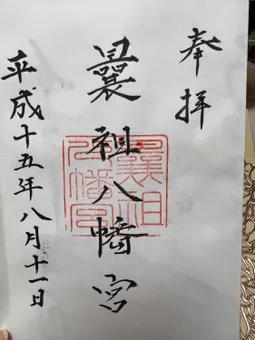 奉拝
曩祖八幡宮
曩祖
八幡宮
平成十五年八月十一日